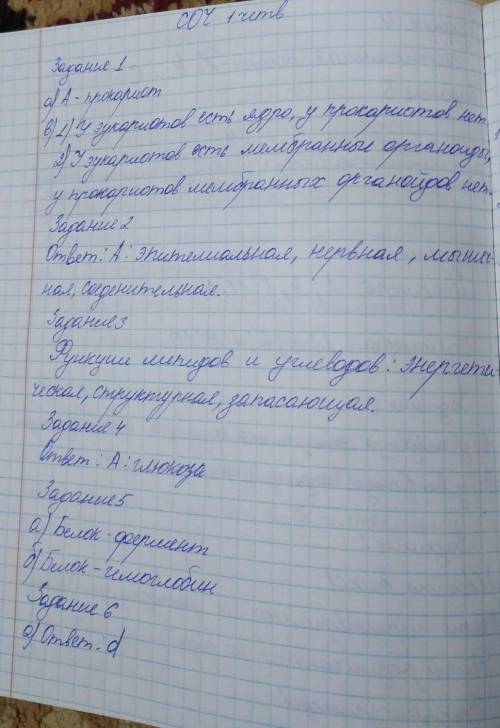 СОЧ 1 четв
Задание 1
а) А - прокариот
в) 1) У эукариотов есть ядро, у прокариотов нет.
2) У эукариотов есть мембранные органоиды,
у прокариотов мембранных органойдов нет.
Задание 2
Ответ: А: эпителиальная, нервная, мышеч-
ная, соеденительная.
Задание 3
Функции липидов и углеводов: энергети-
ческая, структурная, запасающая.
Задание 4
Ответ: А: глюкоза
Задание 5
а) Белок - фермент
б) Белок - гемоглобин
Задание 6
а) Ответ: d